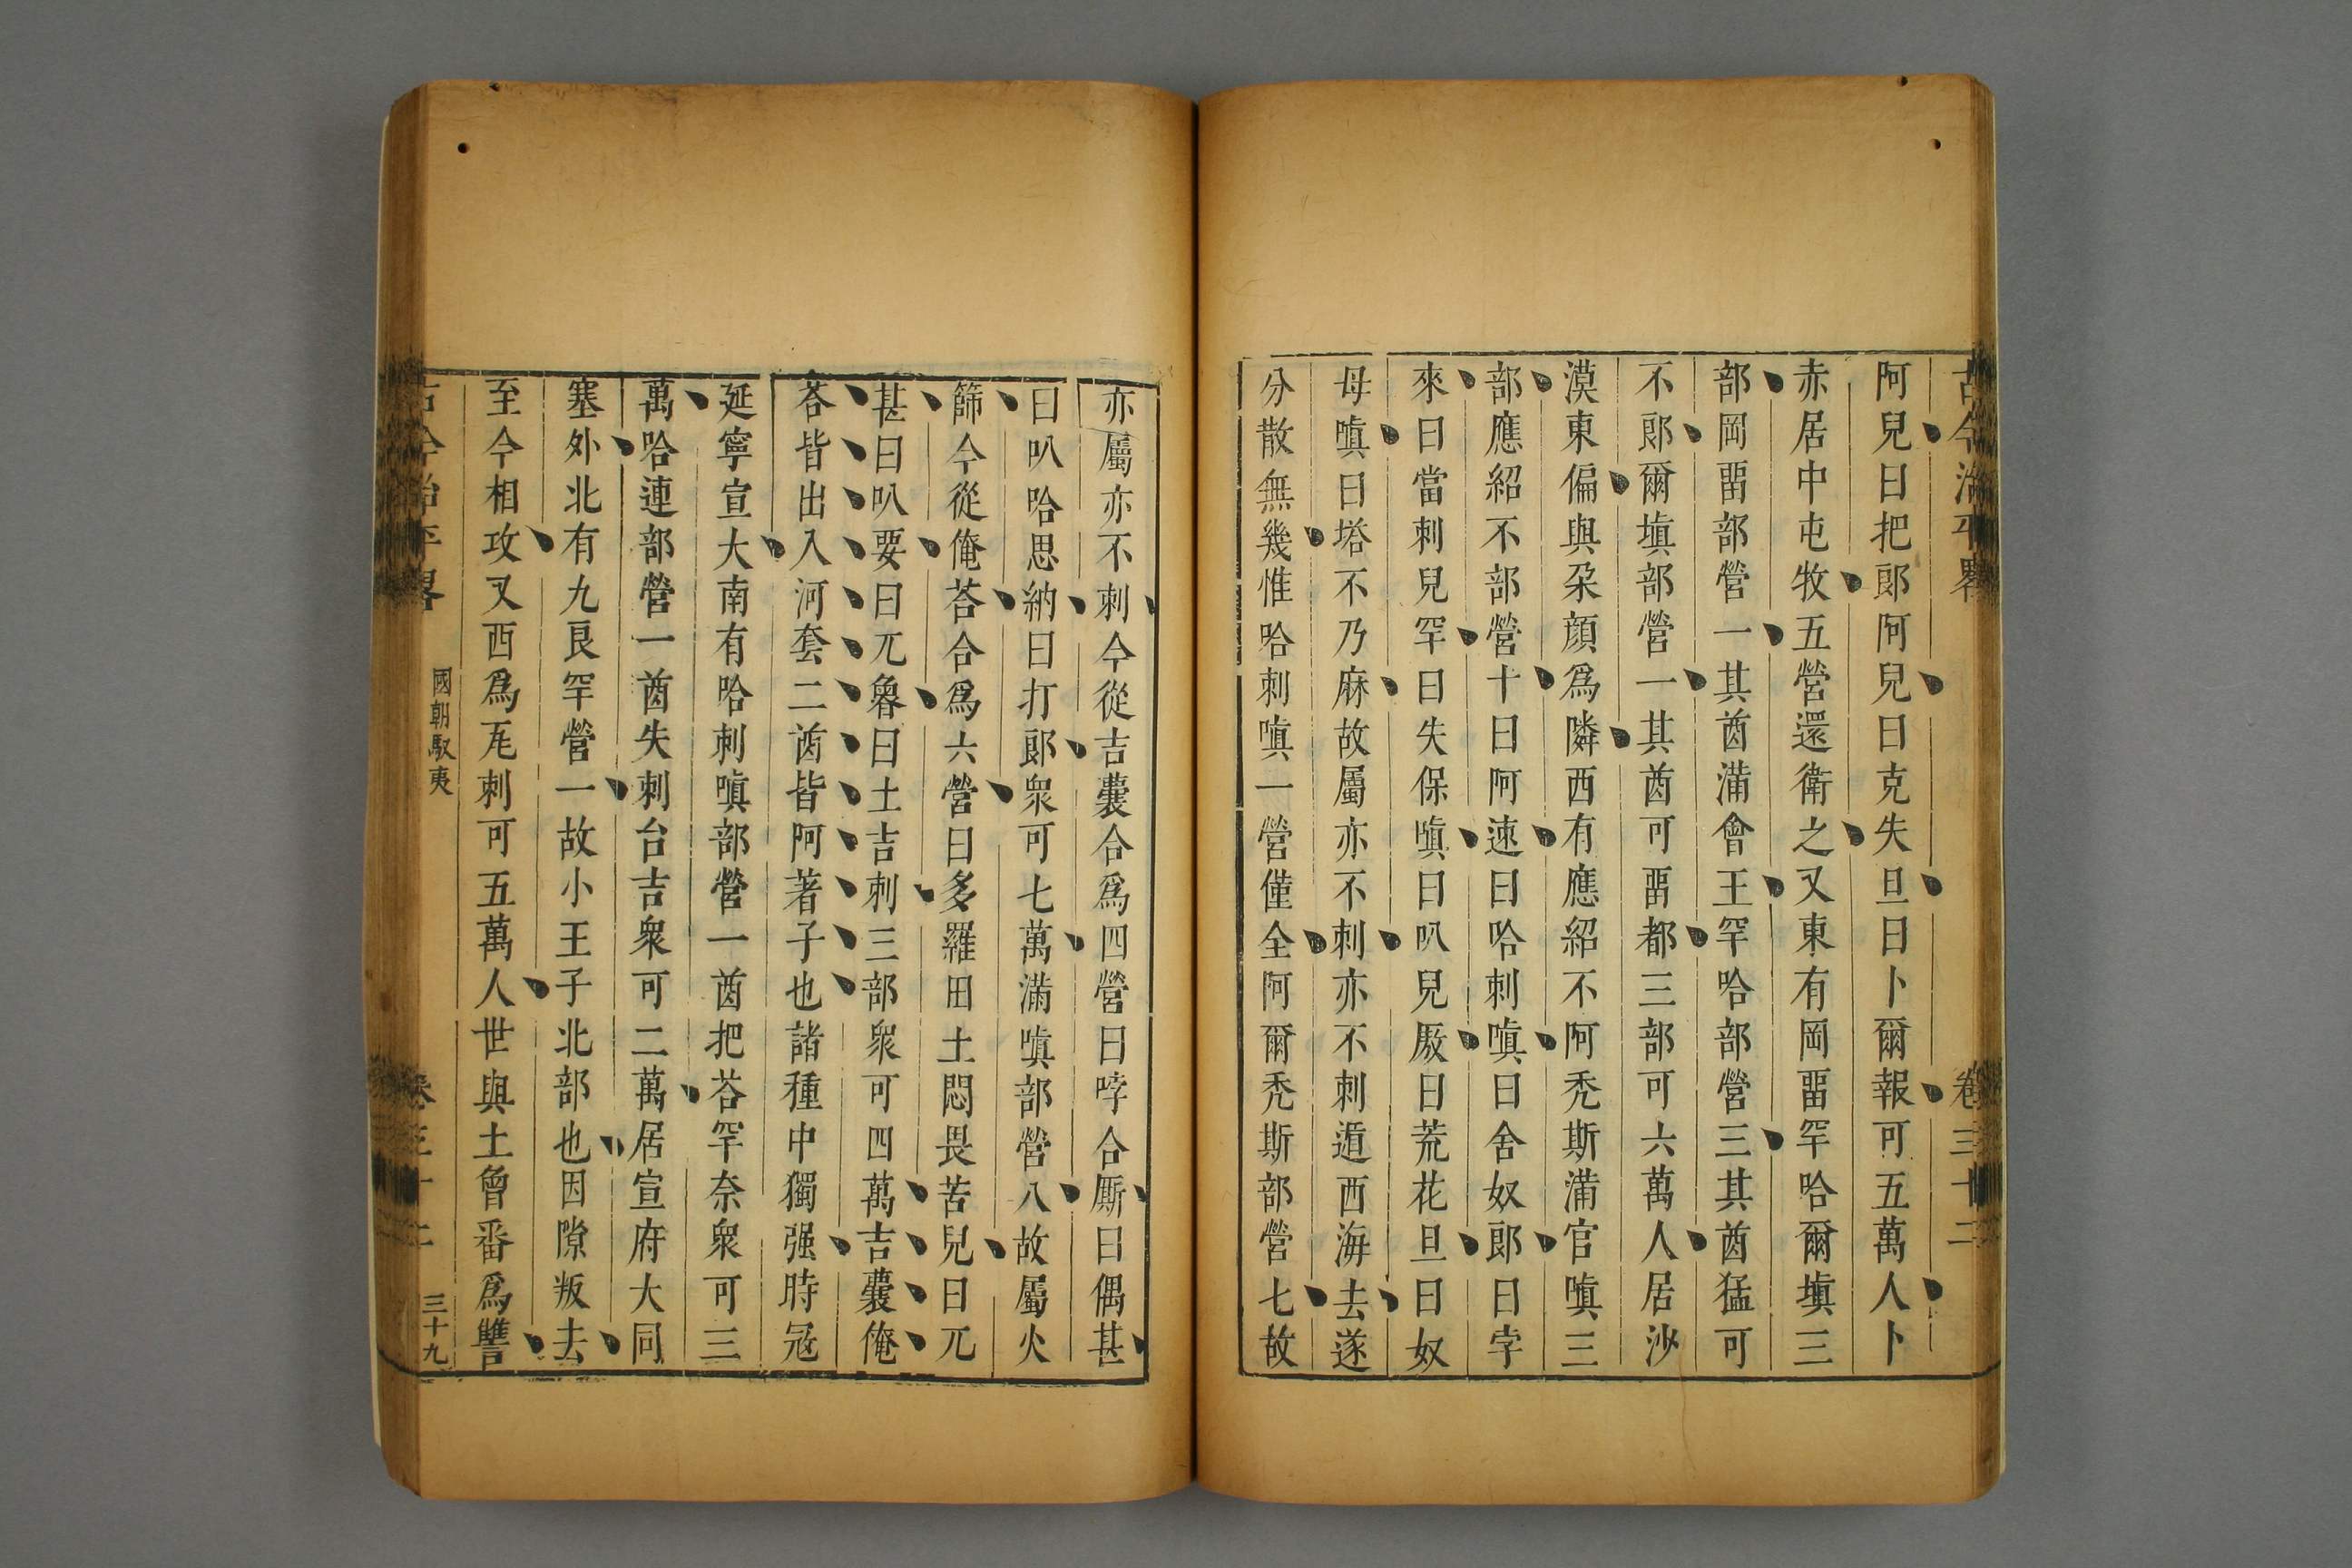 古今治平畧 卷三十二
阿兒曰把郎阿兒曰克失旦曰卜爾報可五萬人卜
赤居中屯牧五營還衛之又東有岡畱罕哈爾塡三
部岡畱部營一其酋滿會王罕哈部營三其酋猛可
不郎爾塡部營一其酋可畱都三部可六萬人居沙
漠東偏與朶顔爲隣西有應紹不阿禿斯滿官嗔三
部應紹不部營十曰阿速曰哈刺嗔曰舍奴郎曰孛
來曰當刺兒罕曰失保嗔曰叭兒厫曰荒花旦曰奴
母嗔曰塔不乃麻故屬亦不刺亦不刺遁西海去遂
分散無幾惟哈刺嗔一營僅全阿爾禿斯部營七故
亦屬亦不刺今從吉囊合爲四營曰哱合厮曰偶甚
曰叭哈思納曰打郎衆可七萬滿嗔部營八故屬火
篩今從俺荅合爲六營曰多羅田土悶畏苦兒曰兀
甚曰叭要曰兀魯曰土吉刺三部衆可四萬吉囊俺
荅皆出入河套二酋皆阿著子也諸種中獨强時冦
延寧宣大南有哈刺嗔部營一酋把荅罕奈衆可三
萬哈連部營一酋失刺台吉衆可二萬居宣府大同
塞外北有九良罕營一故小王子北部也因隙叛去
至今相攻又西爲瓦刺可五萬人世與土魯番爲讐
古今治平畧 國朝馭夷 卷三十二 三十九